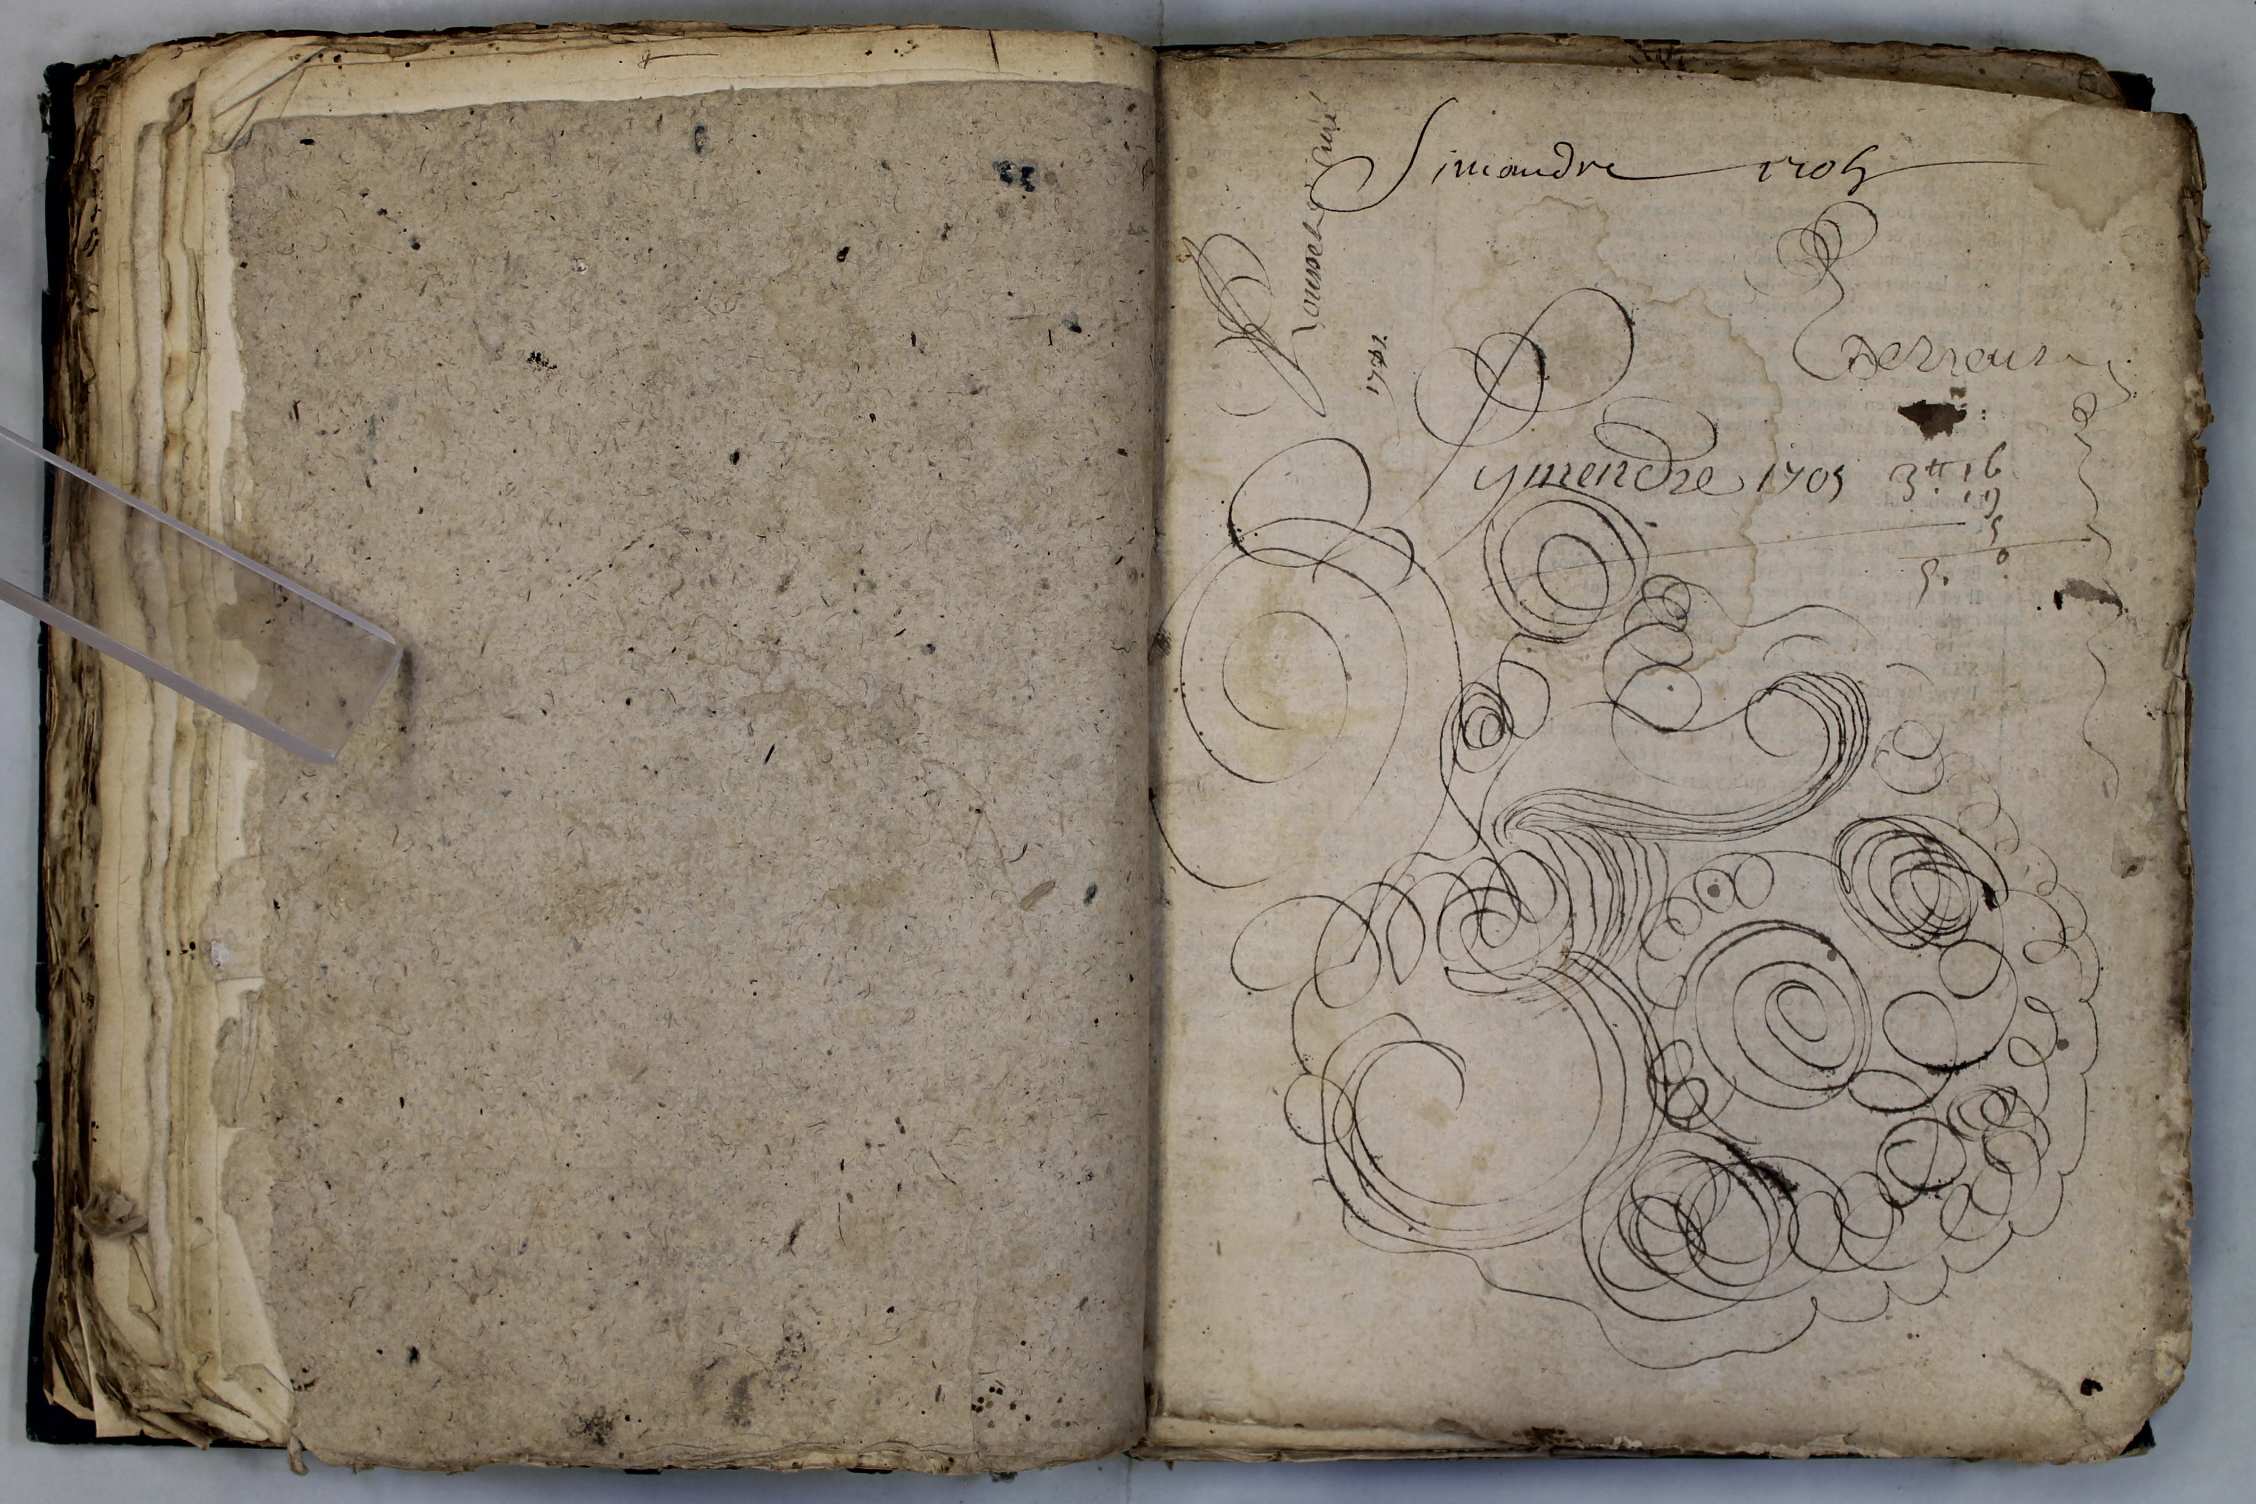 Simandre 1705
Rousset curé
1742
Perreur
Symendre 1705 3tt 16
19
5
5. 0